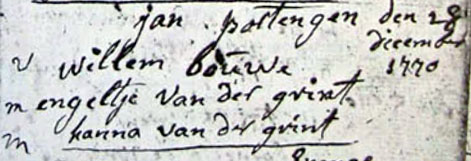 jan pottengen den 28
december
v willem bouwe 1770
m engeltje van der grint
m hanna van der grint